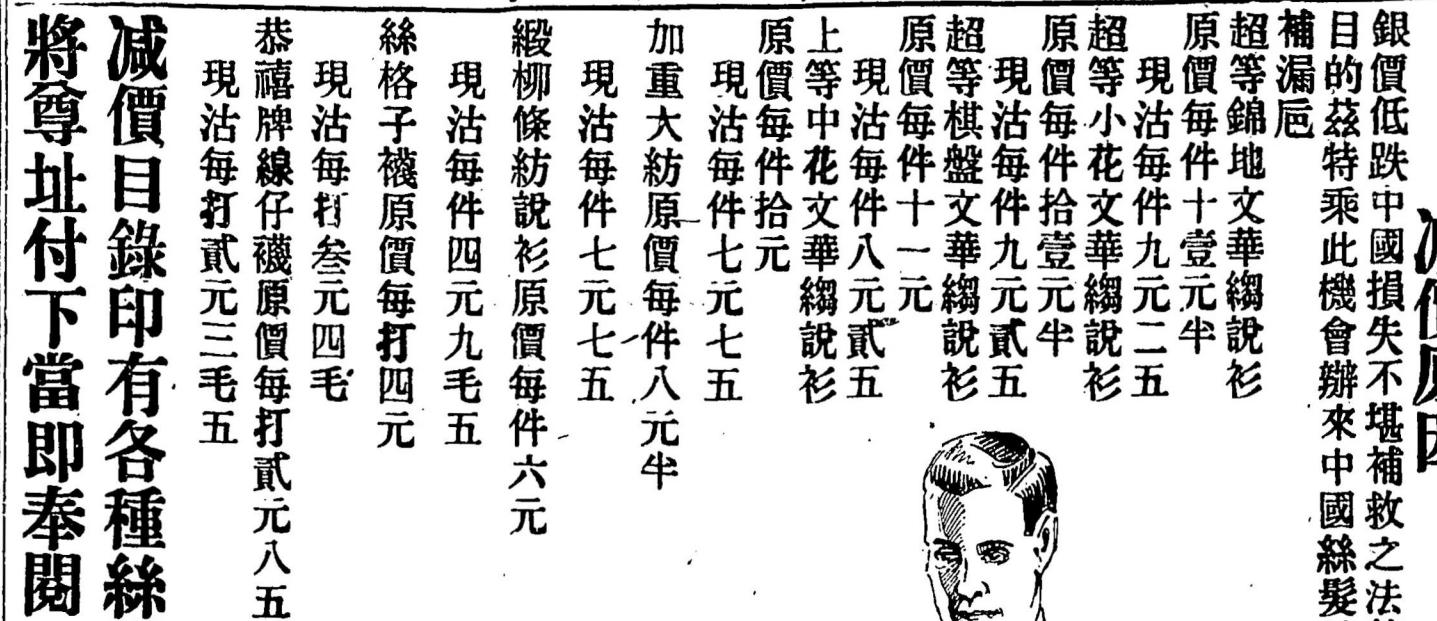 減價原因
銀價低跌中國損失不堪補救之法
目的茲特乘此機會辦來中國絲髮
補漏巵
超等錦地文華縐說衫
原價每件十壹元半
現沽每件九元二五
超等小花文華縐說衫
原價每件拾壹元半
現沽每件九元貳五
超等棋盤文華縐說衫
原價每件十一元
現沽每件八元貳五
上等中花文華縐說衫
原價每件拾元
現沽每件七元七五
加重大紡原價每件八元半
現沽每件七元七五
緞柳條紡說衫原價每件六元
現沽每件四元九毛五
絲格子襪原價每打四元
現沽每打叁元四毛
恭禧牌線仔襪原價每打貳元八五
現沽每打貳元三毛五
減價目錄印有各種絲
將尊址付下當即奉閱